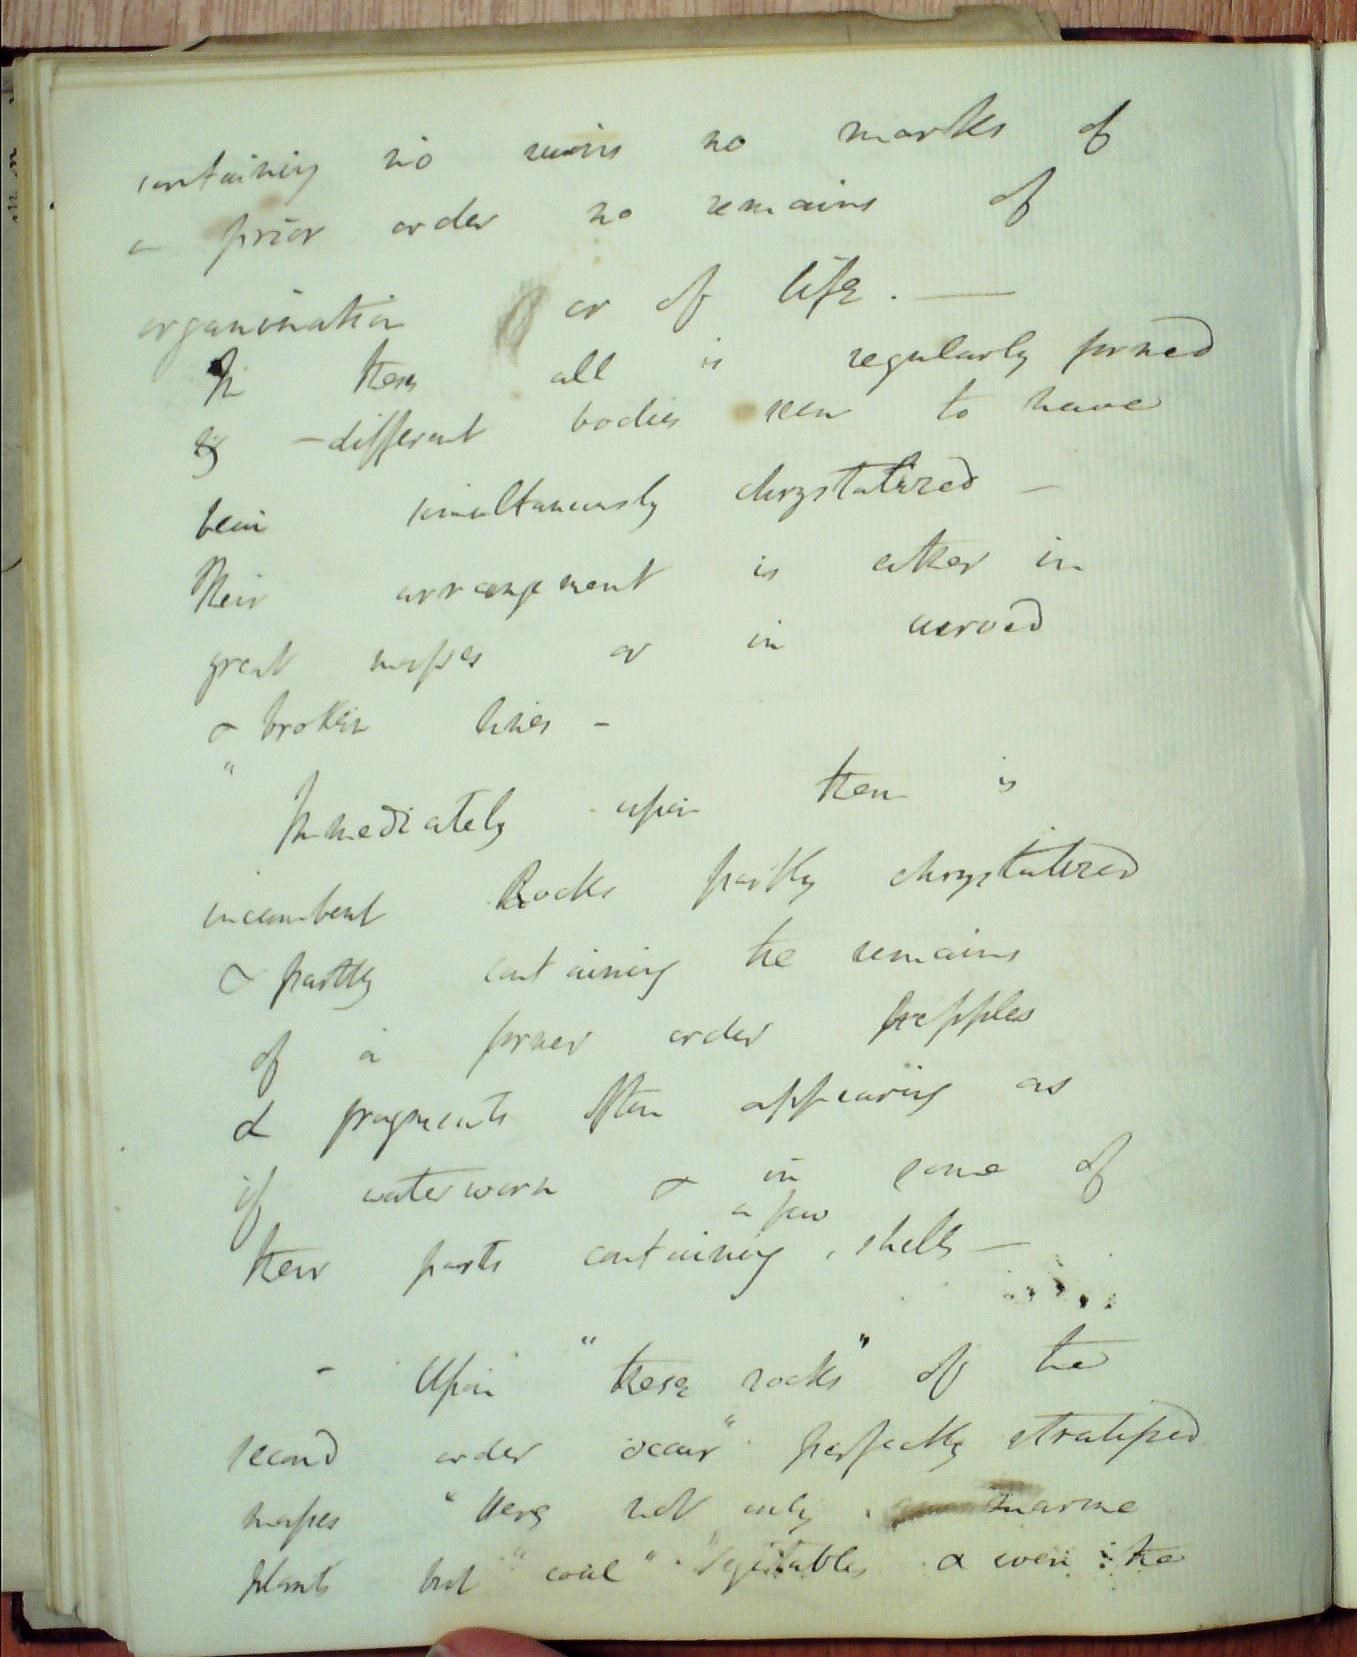 containing no ruins no marks of
a prior order no remains of
organisation or of life. —
In these all is regularly formed
& – different bodies seem to have
been simultaneously chrystalized –
Their arrangement is either in
great masses or in curved
& broken lines –
" Immediately upon them is
incumbent Rocks partly chrystalized
& partly containing the remains
of a former order
& fragments often appearing as
if waterworn & in some of
a few
their parts containing , shells –
– Upon "these rocks" of the
second order occur" perfectly stratified
masses "Here not only marine
plants but "coal" "Vegitables & even the